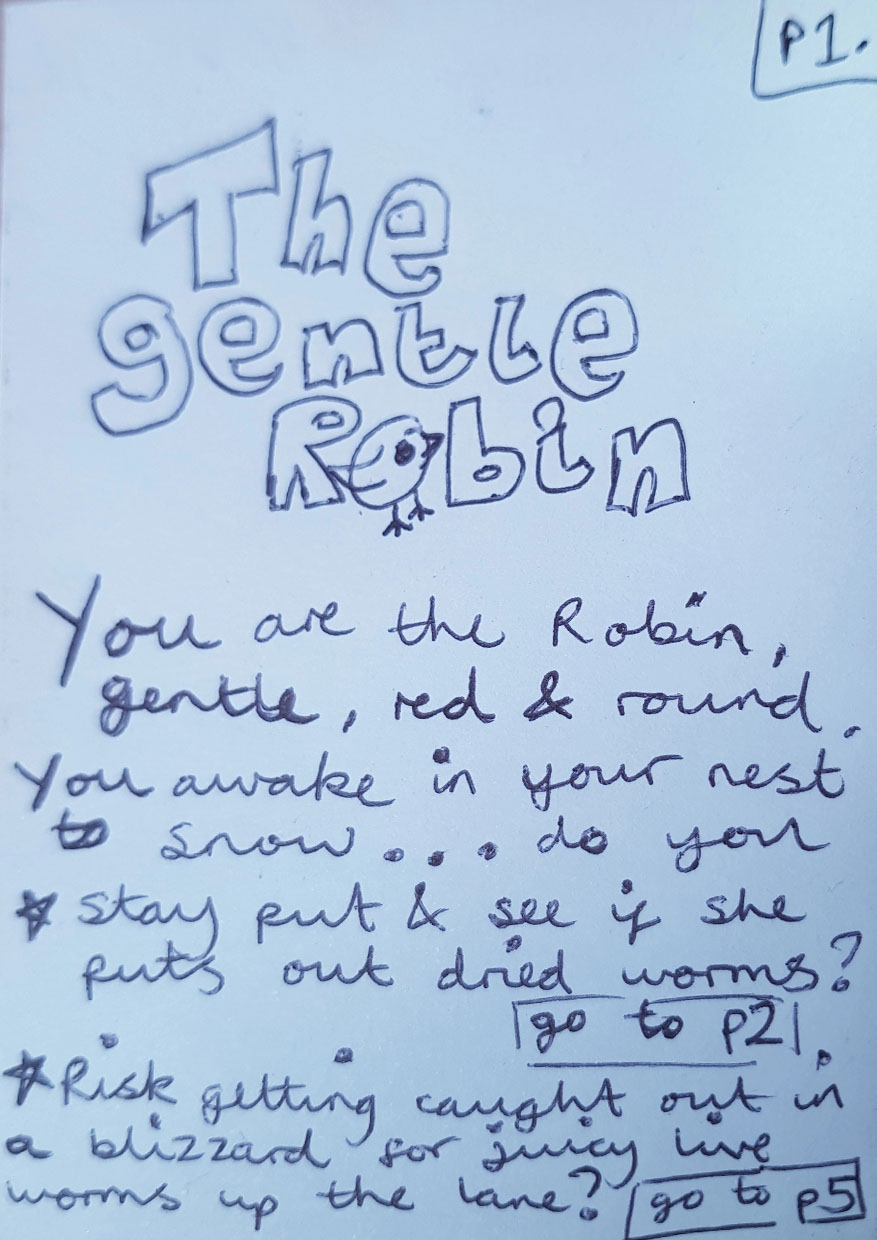 p1.
The
gentle
Robin
You are the Robin,
gentle, red & round.
You awake in your nest
to snow... do you
* stay put & see if she
puts out dried worms?
go to p2.
* Risk getting caught out in
a blizzard for juicy live
worms up the lane? go to p5